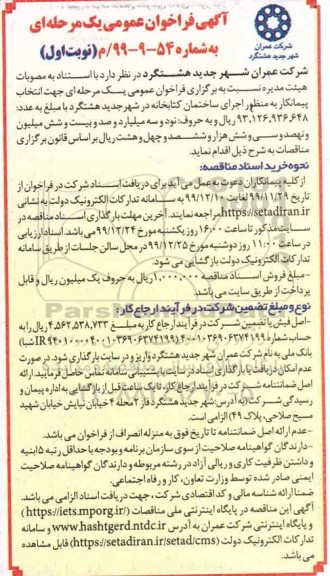 شرکت عمران
شهر جدید هشتگرد
آگهی فراخوان عمومی یک مرحله‌ای
به شماره ۵۴-۹-۹۹/م (نوبت اول)
شرکت عمران شهر جدید هشتگرد در نظر دارد با استناد به مصوبات
هیئت مدیره نسبت به برگزاری فراخوان عمومی یک مرحله ای جهت انتخاب
پیمانکار به منظور اجرای ساختمان کتابخانه در شهر جدید هشتگرد با مبلغ به عدد:
۹۳,۱۲۶,۹۳۶,۶۴۸ ریال و به حروف: نود و سه میلیارد و صد و بیست و شش میلیون
و نهصد و سی و شش هزار و ششصد و چهل و هشت ریال بر اساس قانون برگزاری
مناقصات به شرح ذیل اقدام نماید.
نحوه خرید اسناد مناقصه:
از کلیه پیمانکاران دعوت به عمل می آید برای دریافت اسناد شرکت در فراخوان از
تاریخ ۹۹/۱۱/۲۹ لغایت ۹۹/۱۲/۱۰ به سامانه تدارکات الکترونیک دولت به نشانی
https://setadiran.ir مراجعه نمایند. آخرین مهلت بارگذاری اسناد مناقصه در
سایت مذکور تا ساعت ۱۶:۰۰ روز یکشنبه مورخ ۹۹/۱۲/۲۴ می باشد. اسناد ارزیابی
در ساعت ۱۱:۰۰ روز دوشنبه مورخ ۹۹/۱۲/۲۵ در محل سالن جلسات از طریق سامانه
تدارکات الکترونیک دولت بازگشایی می شود.
- مبلغ فروش اسناد مناقصه ۱,۰۰۰,۰۰۰ ریال به حروف یک میلیون ریال و قابل
پرداخت از طریق سایت می باشد.
نوع و مبلغ تضمین شرکت در فرآیند ارجاع کار:
- اصل فیش یا تضمین شرکت در فرآیند ارجاع کار به مبلغ ۴,۵۶۲,۵۳۸,۷۳۳ ریال را به
بانک ملی به نام شرکت عمران شهر جدید هشتگرد واریز و در سایت بارگذاری شود. در صورت
اصل ضمانتنامه شرکت در فرآیند ارجاع کار، تا یک ساعت قبل از بازگشایی به اداره پیمان و
رسیدگی شرکت (به آدرس: شهر جدید هشتگرد فاز ۲ محله ۴ خیابان نیایش خیابان شهید
مسیح صلاحی، پلاک ۴۹) الزامی است.
- عدم ارائه اصل ضمانتنامه تا تاریخ فوق به منزله انصراف از فراخوان می باشد.
- دارندگان گواهینامه صلاحیت از سوی سازمان برنامه و بودجه با حداقل رتبه ۵ ابنیه
و داشتن ظرفیت کاری و ریالی آزاد در رشته مربوطه و دارندگان گواهینامه صلاحیت
ایمنی صادر شده توسط وزارت تعاون، کار و رفاه اجتماعی.
ضمنا ارائه شناسه ملی و کد اقتصادی شرکت، جهت دریافت اسناد الزامی می باشد.
آگهی این مناقصه در پایگاه اینترنتی ملی مناقصات (https://iets.mporg.ir/)
و پایگاه اینترنتی شرکت عمران به آدرس www.hashtgerd.ntdc.ir و سامانه
تدارکات الکترونیک دولت (https://setadiran.ir/setad/cms) قابل مشاهده
می باشد.